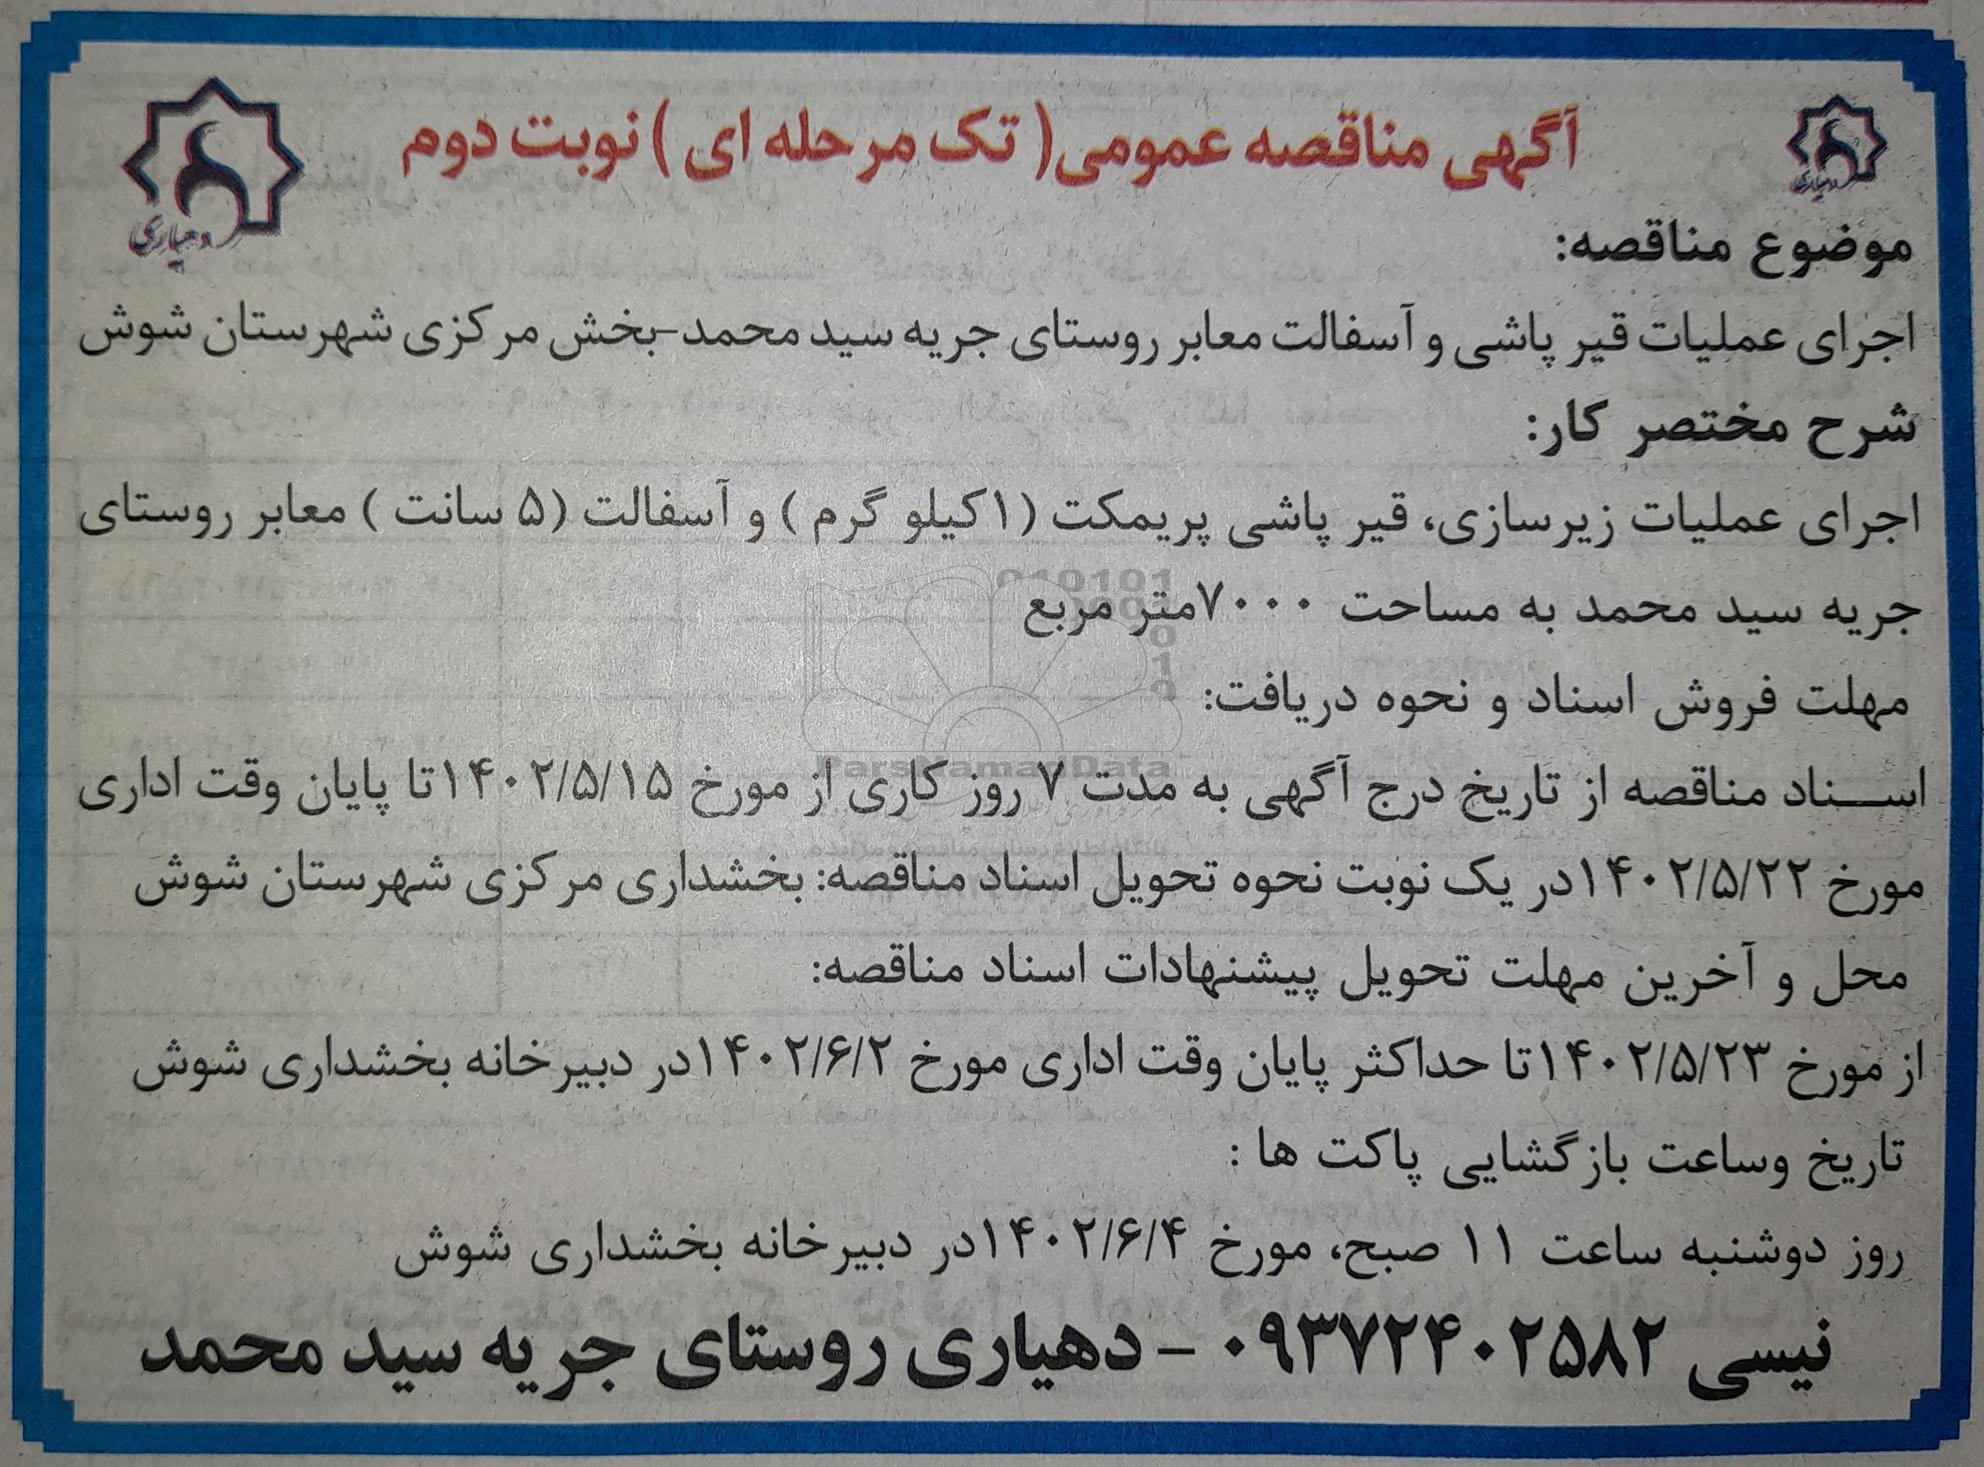 آگهی مناقصه عمومی( تک مرحله ای ) نوبت دوم
دهیاری
دهیاری
موضوع مناقصه:
اجرای عملیات قیر پاشی و آسفالت معابر روستای جریه سید محمد-بخش مرکزی شهرستان شوش
شرح مختصر کار:
اجرای عملیات زیرسازی، قیر پاشی پریمکت (۱کیلو گرم ) و آسفالت (۵ سانت ) معابر روستای
جریه سید محمد به مساحت ۷۰۰۰متر مربع
مهلت فروش اسناد و نحوه دریافت:
اسناد مناقصه از تاریخ درج آگهی به مدت ۷ روز کاری از مورخ ۱۴۰۲/۵/۱۵تا پایان وقت اداری
مورخ ۱۴۰۲/۵/۲۲در یک نوبت نحوه تحویل اسناد مناقصه: بخشداری مرکزی شهرستان شوش
محل و آخرین مهلت تحویل پیشنهادات اسناد مناقصه:
از مورخ ۱۴۰۲/۵/۲۳تا حداکثر پایان وقت اداری مورخ ۱۴۰۲/۶/۲در دبیرخانه بخشداری شوش
تاریخ وساعت بازگشایی پاکت ها :
روز دوشنبه ساعت ۱۱ صبح، مورخ ۱۴۰۲/۶/۴در دبیرخانه بخشداری شوش
نیسی ۰۹۳۷۲۴۰۲۵۸۲ – دهیاری روستای جریه سید محمد
ParsNamadData